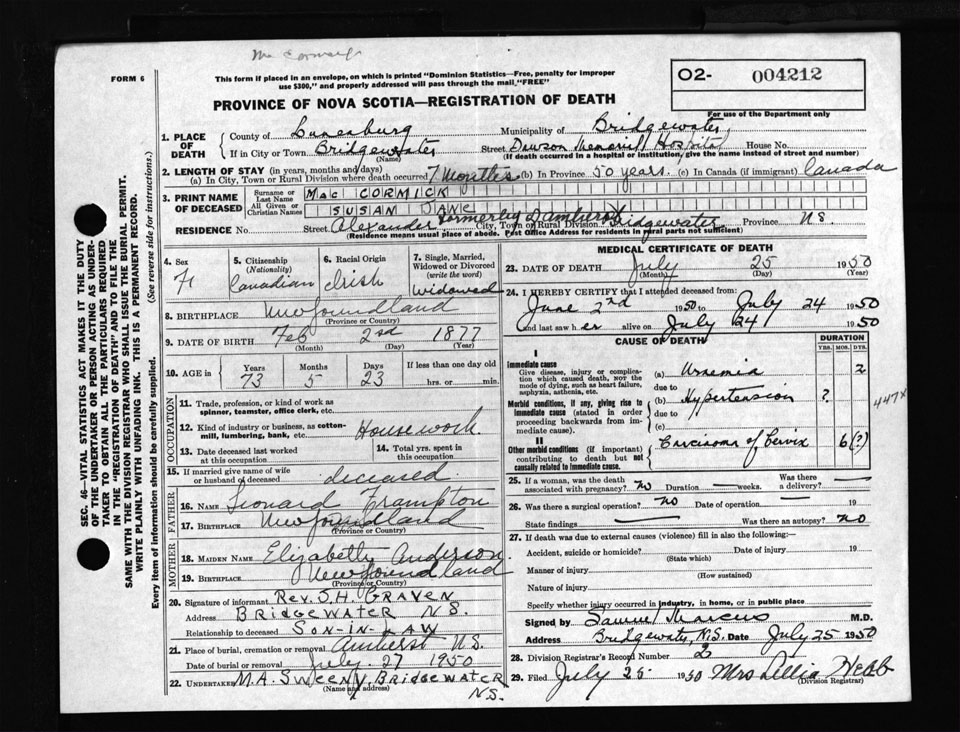 Mc Cormack
FORM 6
This form if placed in an envelope, on which is printed "Dominion Statistics—Free, penalty for improper
use $300," and properly addressed will pass through the mail "FREE"
O2- 004212
For use of the Department only
PROVINCE OF NOVA SCOTIA—REGISTRATION OF DEATH
1. PLACE OF DEATH { County of Lunenburg Municipality of Bridgewater
If in City or Town Bridgewater (Name) Street Dawson Memorial Hospital House No.
(If death occurred in a hospital or institution, give the name instead of street and number)
2. LENGTH OF STAY (in years, months and days)
(a) In City, Town or Rural Division where death occurred 7 Months (b) In Province 50 years. (c) In Canada (if immigrant) Canada
3. PRINT NAME OF DECEASED Surname or Last Name Mac CORMICK
All Given or Christian Names SUSAN JANE
formerly of Amherst
RESIDENCE No. Street Alexander City, Town or Rural Division Bridgewater Province N.S.
(Residence means usual place of abode. Post Office Address for residents in rural parts not sufficient)
4. Sex F
5. Citizenship (Nationality) Canadian
6. Racial Origin Irish
7. Single, Married, Widowed or Divorced (write the word) Widowed
8. BIRTHPLACE Newfoundland
(Province or Country)
9. DATE OF BIRTH Feb 2nd 1877
(Month) (Day) (Year)
10. AGE in { Years 73 Months 5 Days 23 If less than one day old
hrs. or min.
OCCUPATION
11. Trade, profession, or kind of work as spinner, teamster, office clerk, etc.
12. Kind of industry or business, as cotton-mill, lumbering, bank, etc. Housework
13. Date deceased last worked at this occupation
14. Total yrs. spent in this occupation
15. If married give name of wife or husband of deceased deceased
FATHER
16. NAME Leonard Frampton
17. BIRTHPLACE Newfoundland
(Province or Country)
MOTHER
18. MAIDEN NAME Elizabeth Anderson.
19. BIRTHPLACE Newfoundland
(Province or Country)
20. Signature of informant Rev. J.H. GRAVEN
Address BRIDGEWATER N.S.
Relationship to deceased SON-IN-LAW
21. Place of burial, cremation or removal Amherst N.S.
Date of burial or removal July. 27 1950
22. UNDERTAKER M.A. SWEENY, BRIDGEWATER
(Name and address) N.S.
MEDICAL CERTIFICATE OF DEATH
23. DATE OF DEATH July 25 1950
(Month) (Day) (Year)
24. I HEREBY CERTIFY that I attended deceased from:
June 2nd 1950 to July 24 1950
and last saw her alive on July 24 1950
CAUSE OF DEATH
DURATION
YRS. MOS. DYS.
I
Immediate cause
Give disease, injury or complication which caused death, not the mode of dying, such as heart failure, asphyxia, asthenia, etc.
(a) Uraemia 2
due to
Morbid conditions, if any, giving rise to immediate cause (stated in order proceeding backwards from immediate cause).
(b) Hypertension ?
due to
(c)
447X
II
Other morbid conditions (if important) contributing to death but not causally related to immediate cause.
Carcinoma of Cervix 6(?)
25. If a woman, was the death associated with pregnancy? no Duration weeks. Was there a delivery?
26. Was there a surgical operation? no Date of operation 19
State findings Was there an autopsy? no
27. If death was due to external causes (violence) fill in also the following:—
Accident, suicide or homicide? Date of injury 19
(State which)
Manner of injury
(How sustained)
Nature of injury
Specify whether injury occurred in industry, in home, or in public place
Signed by Samuel Marcus M.D.
Address Bridgewater, N.S. Date July 25 1950
28. Division Registrar's Record Number 2
29. Filed July 25 1950 Mrs Lellia Webb
(Division Registrar)
SEC. 46—VITAL STATISTICS ACT MAKES IT THE DUTY
OF THE UNDERTAKER OR PERSON ACTING AS UNDER-
TAKER TO OBTAIN ALL THE PARTICULARS REQUIRED
IN THE "REGISTRATION OF DEATH" AND TO FILE THE
SAME WITH THE DIVISION REGISTRAR WHO SHALL ISSUE THE BURIAL PERMIT.
WRITE PLAINLY WITH UNFADING INK. THIS IS A PERMANENT RECORD.
Every item of information should be carefully supplied. (See reverse side for instructions.)